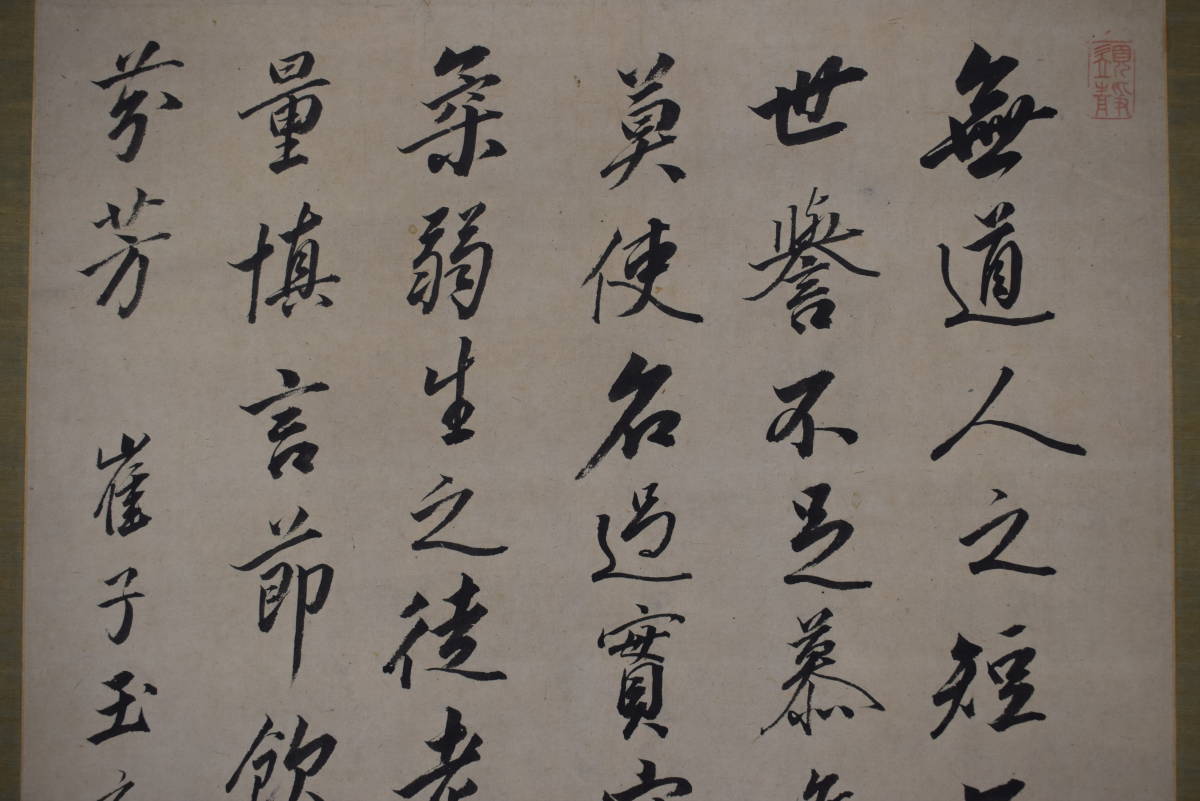 無道人之短
世譽不足慕
莫使名過實
柔弱生之徒老
量慎言節飲
芬芳 崔子玉